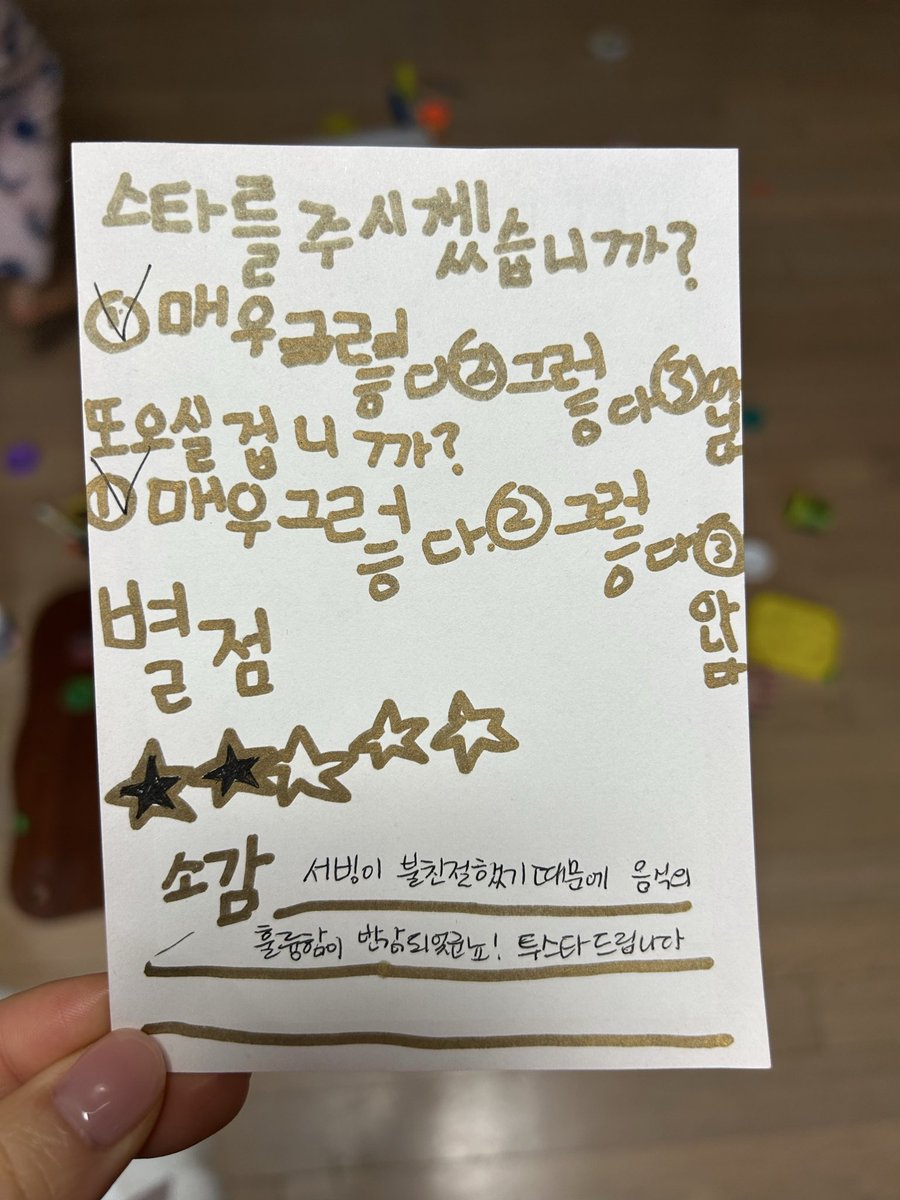 스타를 주시겠습니까?
① 매우그렇다 ② 그렇다 ③ 안줌
또오실겁니까?
① 매우그렇다. ② 그렇다 ③ 안옴
별점
소감 서빙이 불친절했기때문에 음식의
훌륭함이 반감되었군뇨! 투스타드립니다